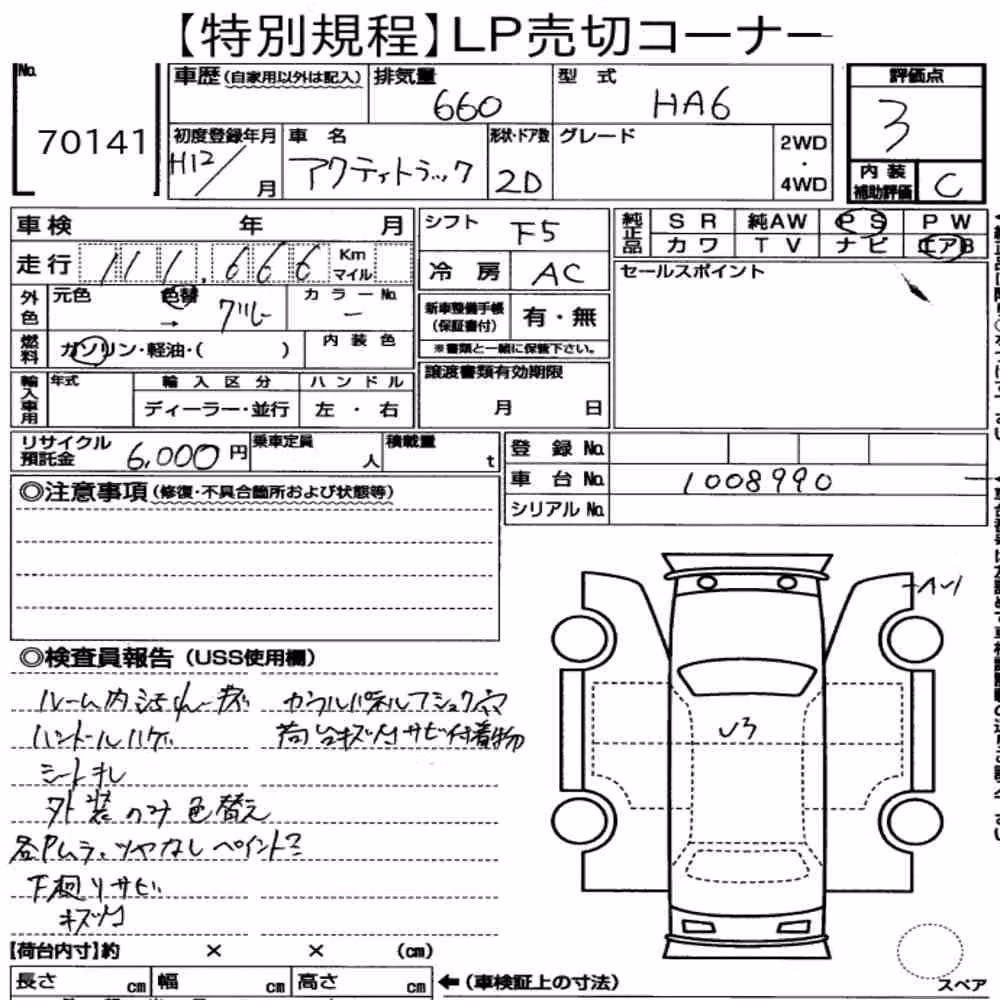 【特別規程】LP売切コーナー
No. 70141
車歴 (自家用以外は記入)
排気量 660
型式 HA6
評価点 3
初度登録年月 H12/ 月
車名 アクティトラック
形状・ドア数 2D
グレード
2WD・4WD
内装補助評価 C
車検 年 月
シフト F5
純正品 SR 純AW PS PW
カワ TV ナビ エアB
走行 111,666 Km マイル
冷房 AC
セールスポイント
外色 元色 色替 → グリーン カラーNo. ー
新車整備手帳(保証書付) 有・無
※書類と一緒に保管下さい。
燃料 ガソリン・軽油・( )
内装色
輸入車用 年式 輸入区分 ハンドル
ディーラー・並行 左・右
譲渡書類有効期限
月 日
リサイクル預託金 6,000円
乗車定員 人
積載量 t
登録No.
車台No. 1008990
シリアルNo.
◎注意事項(修復・不具合箇所および状態等)
A4
◎検査員報告(USS使用欄)
ルーム内
ハンドルハゲ
荷台キズ凹サビ付着物
シートキレ
外装のみ色替え
各Pムラ、ツヤなしペイント
下廻りサビ
キズ凹
【荷台内寸】約 × × (cm)
長さ cm 幅 cm 高さ cm
←(車検証上の寸法)
スペア